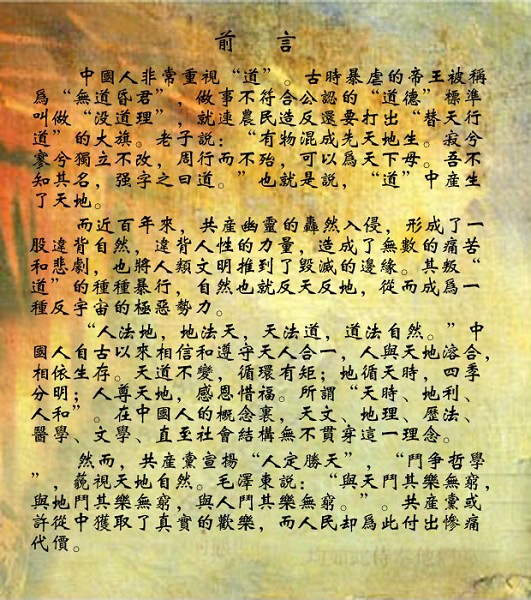 前 言
中國人非常重視“道”。古時暴虐的帝王被稱
爲“無道昏君”，做事不符合公認的“道德”標準
叫做“没道理”，就連農民造反還要打出“替天行
道”的大旗。老子説：“有物混成先天地生。寂兮
寥兮獨立不改，周行而不殆，可以爲天下母。吾不
知其名，强字之曰道。”也就是説，“道”中産生
了天地。
而近百年來，共産幽靈的轟然入侵，形成了一
股違背自然，違背人性的力量，造成了無數的痛苦
和悲劇，也將人類文明推到了毀滅的邊緣。其叛“
道”的種種暴行，自然也就反天反地，從而成爲一
種反宇宙的極惡勢力。
“人法地，地法天，天法道，道法自然。”中
國人自古以來相信和遵守天人合一，人與天地溶合，
相依生存。天道不變，循環有矩；地循天時，四季
分明；人尊天地，感恩惜福。所謂“天時、地利、
人和”。在中國人的概念裏，天文、地理、歷法、
醫學、文學、直至社會結構無不貫穿這一理念。
然而，共産黨宣揚“人定勝天”，“鬥争哲學
”，藐視天地自然。毛澤東説：“與天鬥其樂無窮，
與地鬥其樂無窮，與人鬥其樂無窮。”。共産黨或
許從中獲取了真實的歡樂，而人民却爲此付出慘痛
代價。